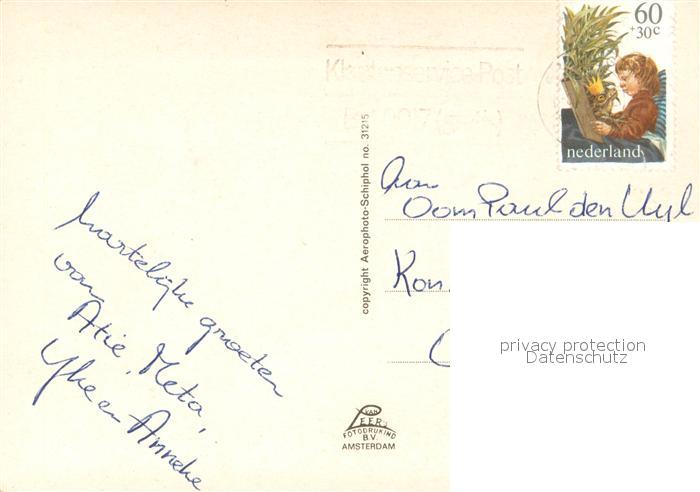 60
+30c
nederland
Klantenservice Post
copyright Aerophoto-Schiphol no. 31215
Aan
Oom Paul den Uyl
Kon.
hartelijke groeten
van
Atie, Meta,
Yke en Anneke
VAN
LEER
FOTODRUKIND
B.V.
AMSTERDAM
privacy protection
Datenschutz